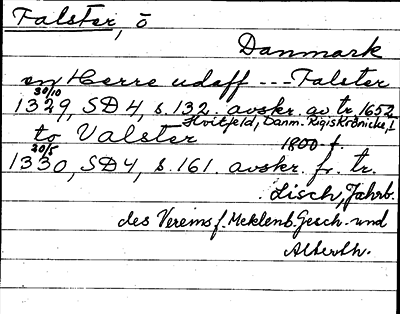 Falster, ö
Danmark
en Herre udaff --- Falster
30/10
1329, SD 4, s. 132. avskr. av tr. 1652
Hvitfeld, Danm. Rigis Krönicke, 1
to Valster 1800-t.
20/5
1330, SD 4, s. 161. avskr. fr. tr.
Lisch, Jahrb.
des Vereins f. Meklenb. Gesch. und
Alterth.